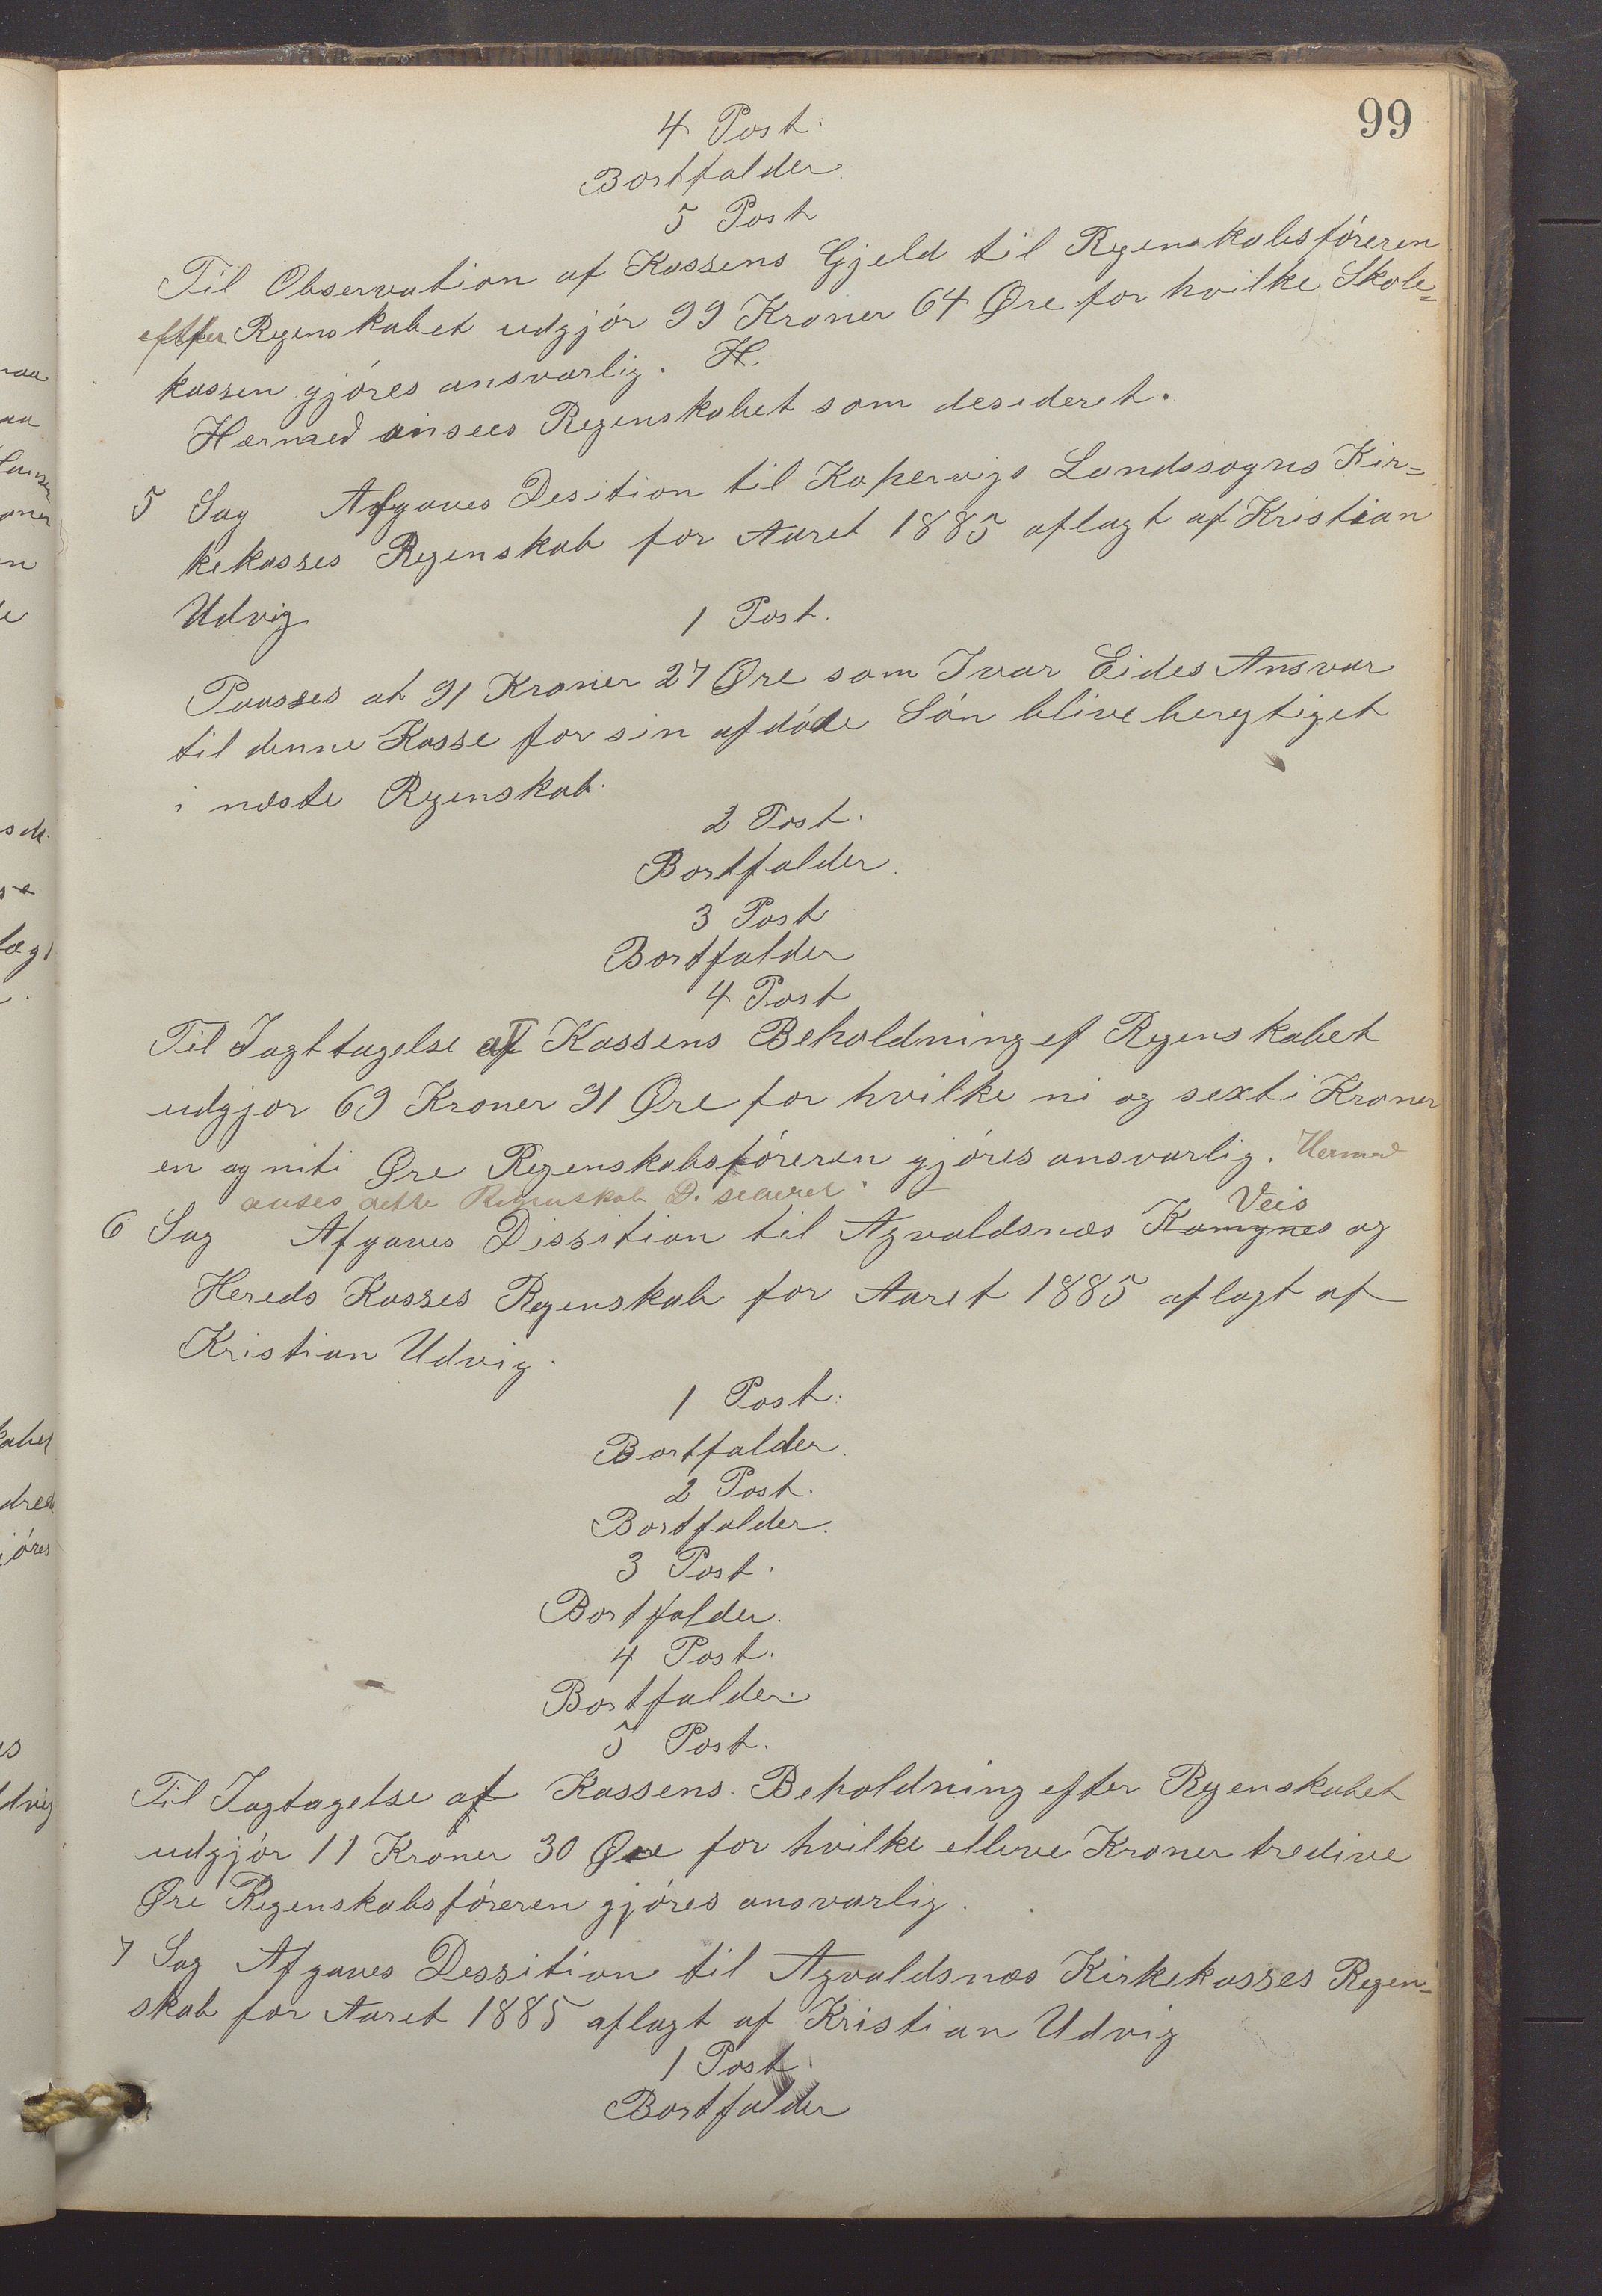 99
4 Post.
Bortfalder.
5 Post
Til Observation af Kassens Gjeld til Regenskabsføreren
efter Regenskabet udgjór 99 Kroner 64 Øre for hvilke Skole=
kassen gjóres ansvarlig. H.
Hermed ansees Regenskabet som desideret.
5 Sag Afgaves Desition til Kopervigs Landssogns Kir=
kekasses Regenskab for Aaret 1885 aflagt af Kristian
Udvig
1 Post.
Paasses at 91 Kroner 27 Øre som Ivar Eides Ansvar
til denne Kasse for sin afdóde Són blive berigtiget
i næste Regenskab.
2 Post.
Bortfalder.
3 Post
Bortfalder
4 Post
Til Iagttagelse af Kassens Beholdning ef Regenskabet
udgjor 69 Kroner 91 Øre for hvilke ni og sexti Kroner
en og niti Øre Regenskabsfóreren gjóres ansvarlig. Hermed
anses dette Regnskab
Veis
6 Sag Afgaves Dissition til Agvaldsnæs Komynes og
Hereds Kasses Regenskab for Aaret 1885 aflagt af
Kristian Udvig.
1 Post.
Bortfalder.
2 Post.
Bortfalder.
3 Post.
Bortfalder.
4 Post.
Bortfalder.
5 Post.
Til Iagtagelse af Kassens Beholdning efter Regenskabet
udgjór 11 Kroner 30 Øre for hvilke elleve Kroner tredive
Øre Regenskabsfóreren gjóres ansvarlig.
7 Sag Afgaves Dessition til Agvaldsnæs Kirkekasses Regen=
skab for Aaret 1885 aflagt af Kristian Udvig
1 Post.
Bortfalder